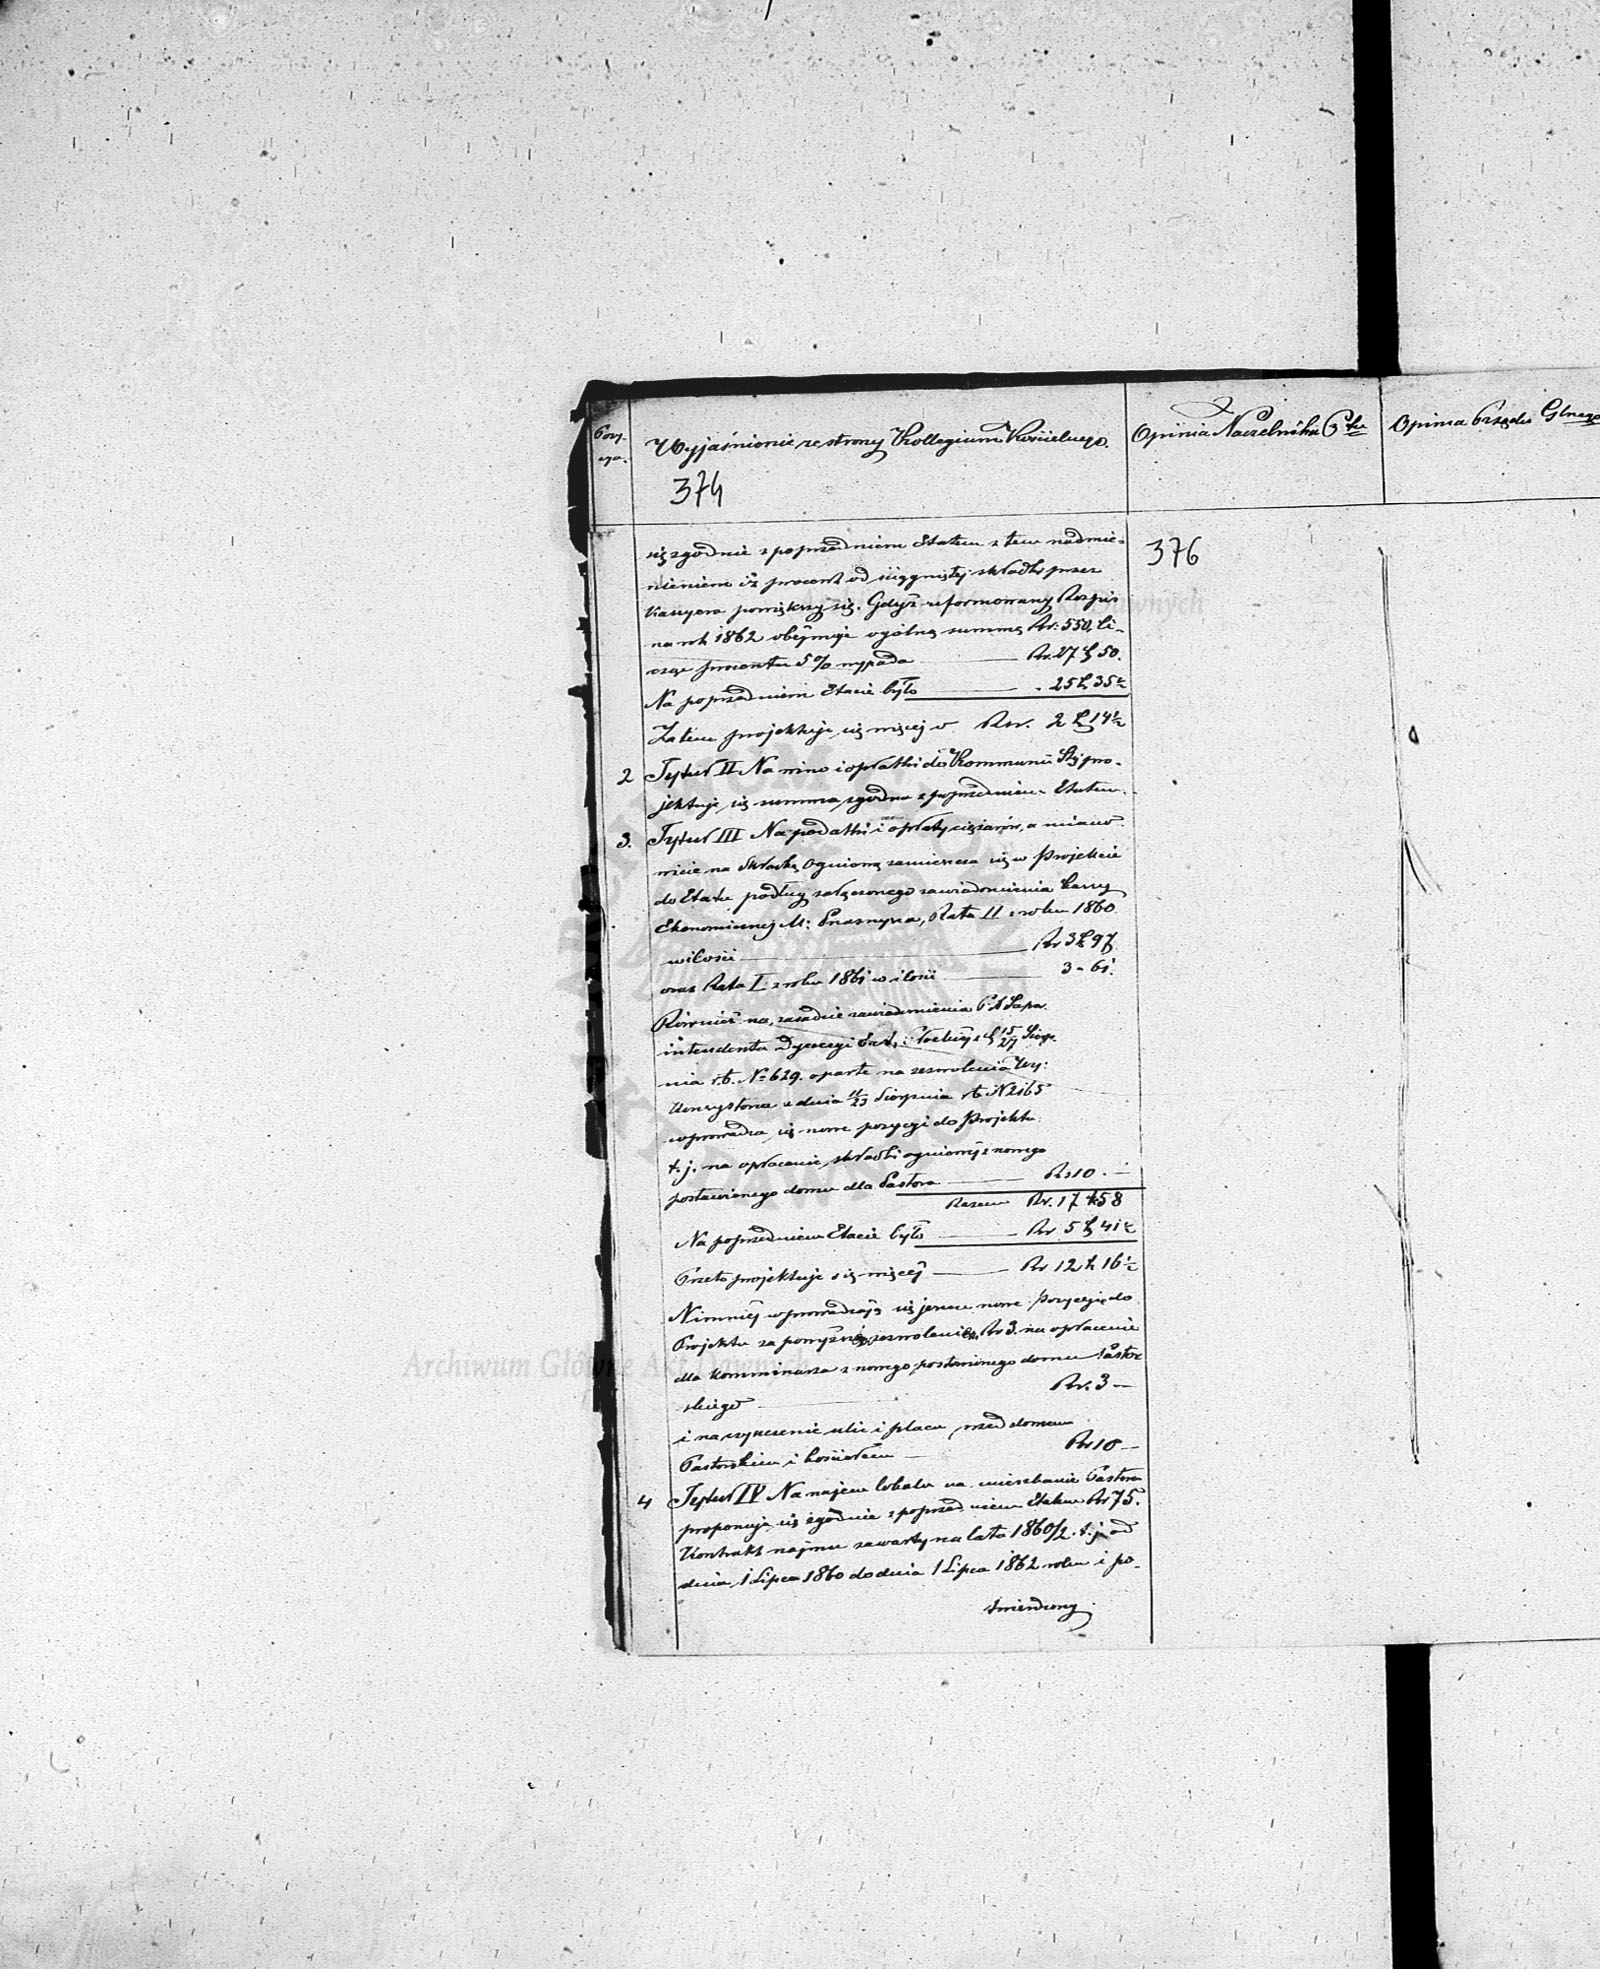 Pozy-
cya.
Wyjaśnienie ze strony Kollegium Kościelnego.
Opinia Naczelnika Ptu
Opinia Urzędu Glnego
374
376
się zgodnie z poprzedniem Etatem z tem nadmie-
nieniem iż procent od ściągniętej składki przez
Kassyera powiększy się. Gdyż reformowany Rozpis
na rok 1862 obejmuje ogólną summę Rs: 550, li-
cząc procentu 5% wypada Rs. 27 k 50.
Na poprzedniem Etacie było 25 k 35½
Zatem projektuje się więcej o Rsr. 2 k 14½
2 Tytuł II Na wino i opłatki do Kommunii Stej pro-
jektuje się summa zgodna z poprzedniem Etatem.
3. Tytuł III Na podatki i opłaty ciężarów, a miano-
wicie na Składkę Ogniową zamieszcza się w Projekcie
do Etatu podług załączonego zawiadomienia Kassy
Ekonomicznej M: Prasnysza, Rata II z roku 1860
w ilości Rs 3 k 97
oraz Rata I z roku 1861 w ilości 3 - 61.
Również na zasadzie zawiadomienia Supe-
intendenta Dyecezyi 15/27 Sierp-
nia r.b. No 629. oparte na zezwoleniu Wy:
Konsystorza z dnia 11/23 Sierpnia r b. N 2165
wprowadza się nowe pozycyi do Projektu
t. j. na opłacenie składki ogniowej z nowego
postawionego domu dla Pastora Rs 10 . —
Razem Rs. 17 k 58
Na poprzedniem Etacie było Rs 5 k 41½
Przeto projektuje się więcej Rs 12 k 16½
Niemniej wprowadzają się jeszcze nowe Pozycyje do
Projektu za powyższem zezwoleniem, Rs 3. na opłacenie
dla kominiarza z nowego postawionego domu Pastor
skiego Rs. 3 —
i na czyszczenie ulic i placu przed domem
Pastorskim i kościołem Rs 10 —
4 Tytuł IV Na najem lokalu na mieszkanie Pastora
proponuje się zgodnie z poprzedniem Etatem Rs 75.
Kontrakt najmu zawarty na lata 1860/2. t. j. od
dnia 1 Lipca 1860 do dnia 1 Lipca 1862 roku i po-
twierdzony
Archiwum Główne Akt Dawnych